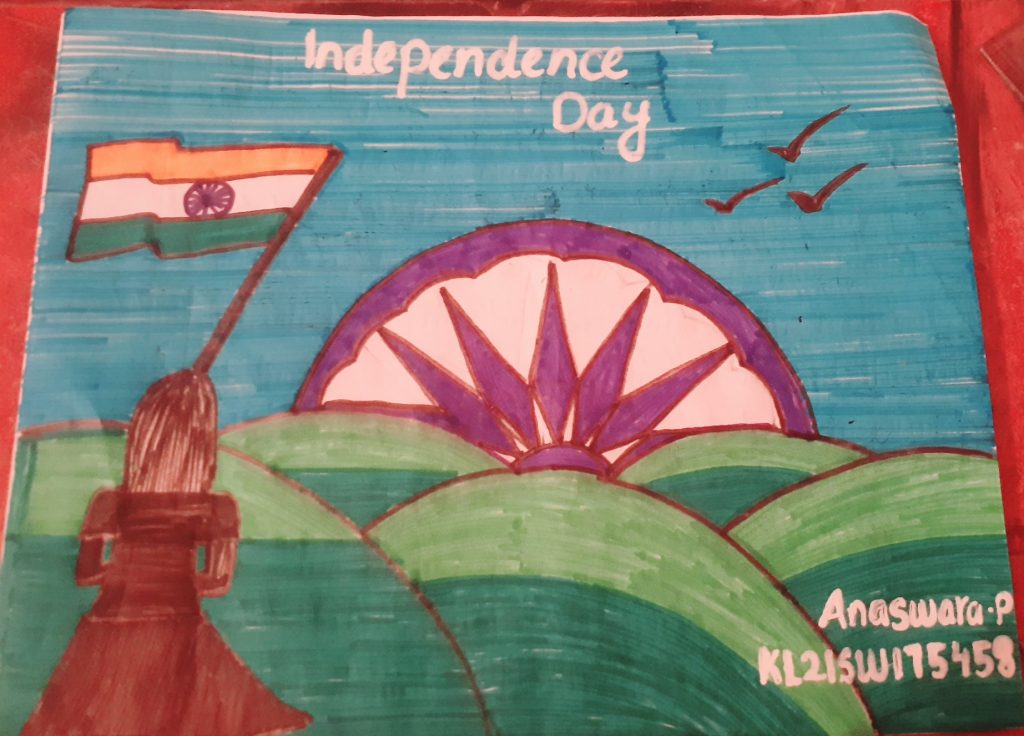 Independence
Day
Anaswara.P
KL21SW175458